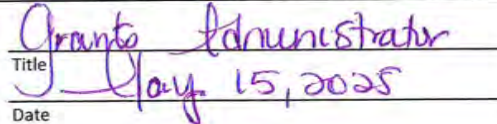 Grants Administrator
Title
May 15, 2025
Date